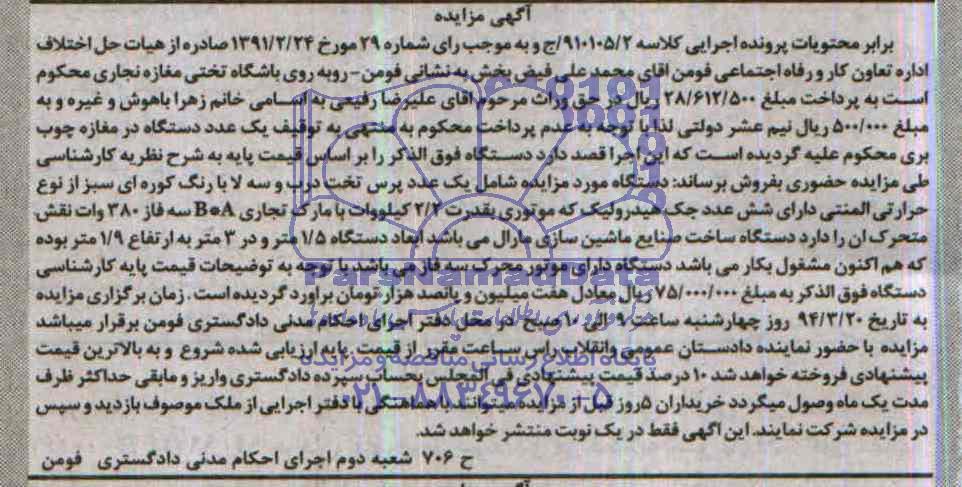 آگهی مزایده
برابر محتویات پرونده اجرایی کلاسه ۹۱۰۱۰۵/۲/ج و به موجب رای شماره ۲۹ مورخ ۱۳۹۱/۲/۲۴ صادره از هیات حل اختلاف
اداره تعاون کار و رفاه اجتماعی فومن اقای محمد علی فیض بخش به نشانی فومن - روبه روی باشگاه تختی مغازه نجاری محکوم
است به پرداخت مبلغ ۲۸/۶۱۲/۵۰۰ ریال در حق وراث مرحوم اقای علیرضا رفیعی به اسامی خانم زهرا باهوش و غیره و به
مبلغ ۵۰۰/۰۰۰ ریال نیم عشر دولتی لذا با توجه به عدم پرداخت محکوم به منتهی به توقیف یک عدد دستگاه در مغازه چوب
بری محکوم علیه گردیده است که این اجرا قصد دارد دستگاه فوق الذکر را بر اساس قیمت پایه به شرح نظریه کارشناسی
طی مزایده حضوری بفروش برساند: دستگاه مورد مزایده شامل یک عدد پرس تخت درب و سه لا با رنگ کوره ای سبز از نوع
حرارتی المنتی دارای شش عدد جک هیدرولیک که موتوری بقدرت ۲/۲ کیلووات با مارک تجاری B*A سه فاز ۳۸۰ وات نقش
متحرک ان را دارد دستگاه ساخت صنایع ماشین سازی مارال می باشد ابعاد دستگاه ۱/۵ متر و در ۳ متر به ارتفاع ۱/۹ متر بوده
که هم اکنون مشغول بکار می باشد دستگاه دارای موتور محرک سه فاز می باشد با توجه به توضیحات قیمت پایه کارشناسی
دستگاه فوق الذکر به مبلغ ۷۵/۰۰۰/۰۰۰ ریال معادل هفت میلیون و پانصد هزار تومان براورد گردیده است. زمان برگزاری مزایده
به تاریخ ۹۴/۳/۲۰ روز چهارشنبه ساعت ۹ الی ۱۰ صبح در محل دفتر اجرای احکام مدنی دادگستری فومن برقرار میباشد
مزایده با حضور نماینده دادستان عمومی وانقلاب راس ساعت مقرر از قیمت پایه ارزیابی شده شروع و به بالاترین قیمت
پیشنهادی فروخته خواهد شد ۱۰ درصد قیمت پیشنهادی فی المجلس بحساب سپرده دادگستری واریز و مابقی حداکثر ظرف
مدت یک ماه وصول میگردد خریداران ۵روز قبل از مزایده میتوانند با هماهنگی با دفتر اجرایی از ملک موصوف بازدید و سپس
در مزایده شرکت نمایند. این اگهی فقط در یک نوبت منتشر خواهد شد.
ح ۷۰۶ شعبه دوم اجرای احکام مدنی دادگستری فومن
ParsNamadData
پایگاه اطلاع رسانی مناقصه و مزایده
۰۲۱-۸۸۳۴۹۶۷۰-۵